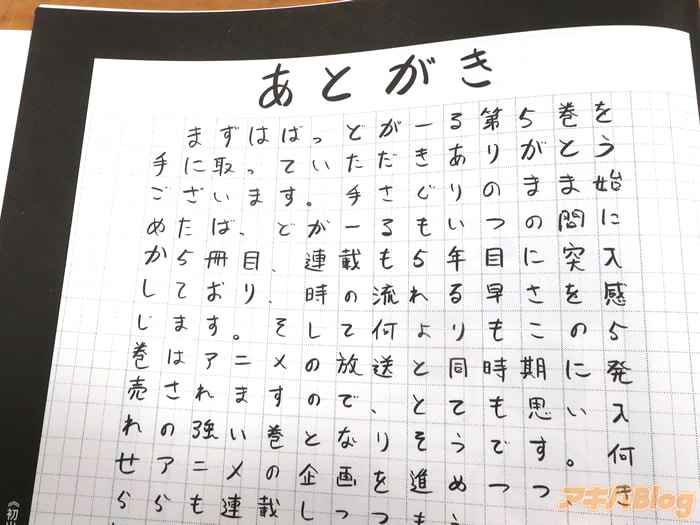 あとがき
まずはばっとがーる第5巻を
手に取っていただきありがとう
ございます。手さぐりのまま始
めたばっとがーるもいつの間に
か5冊目、連載も5年目に突入
しており、時の流れる早さを感
じます。そして何よりもこの5
巻はアニメの放送と同時期に発
売されますので、とても思い入
れの強い巻となりそうです。何
せアニメの企画を進めつつ
《初出
アキバBlog